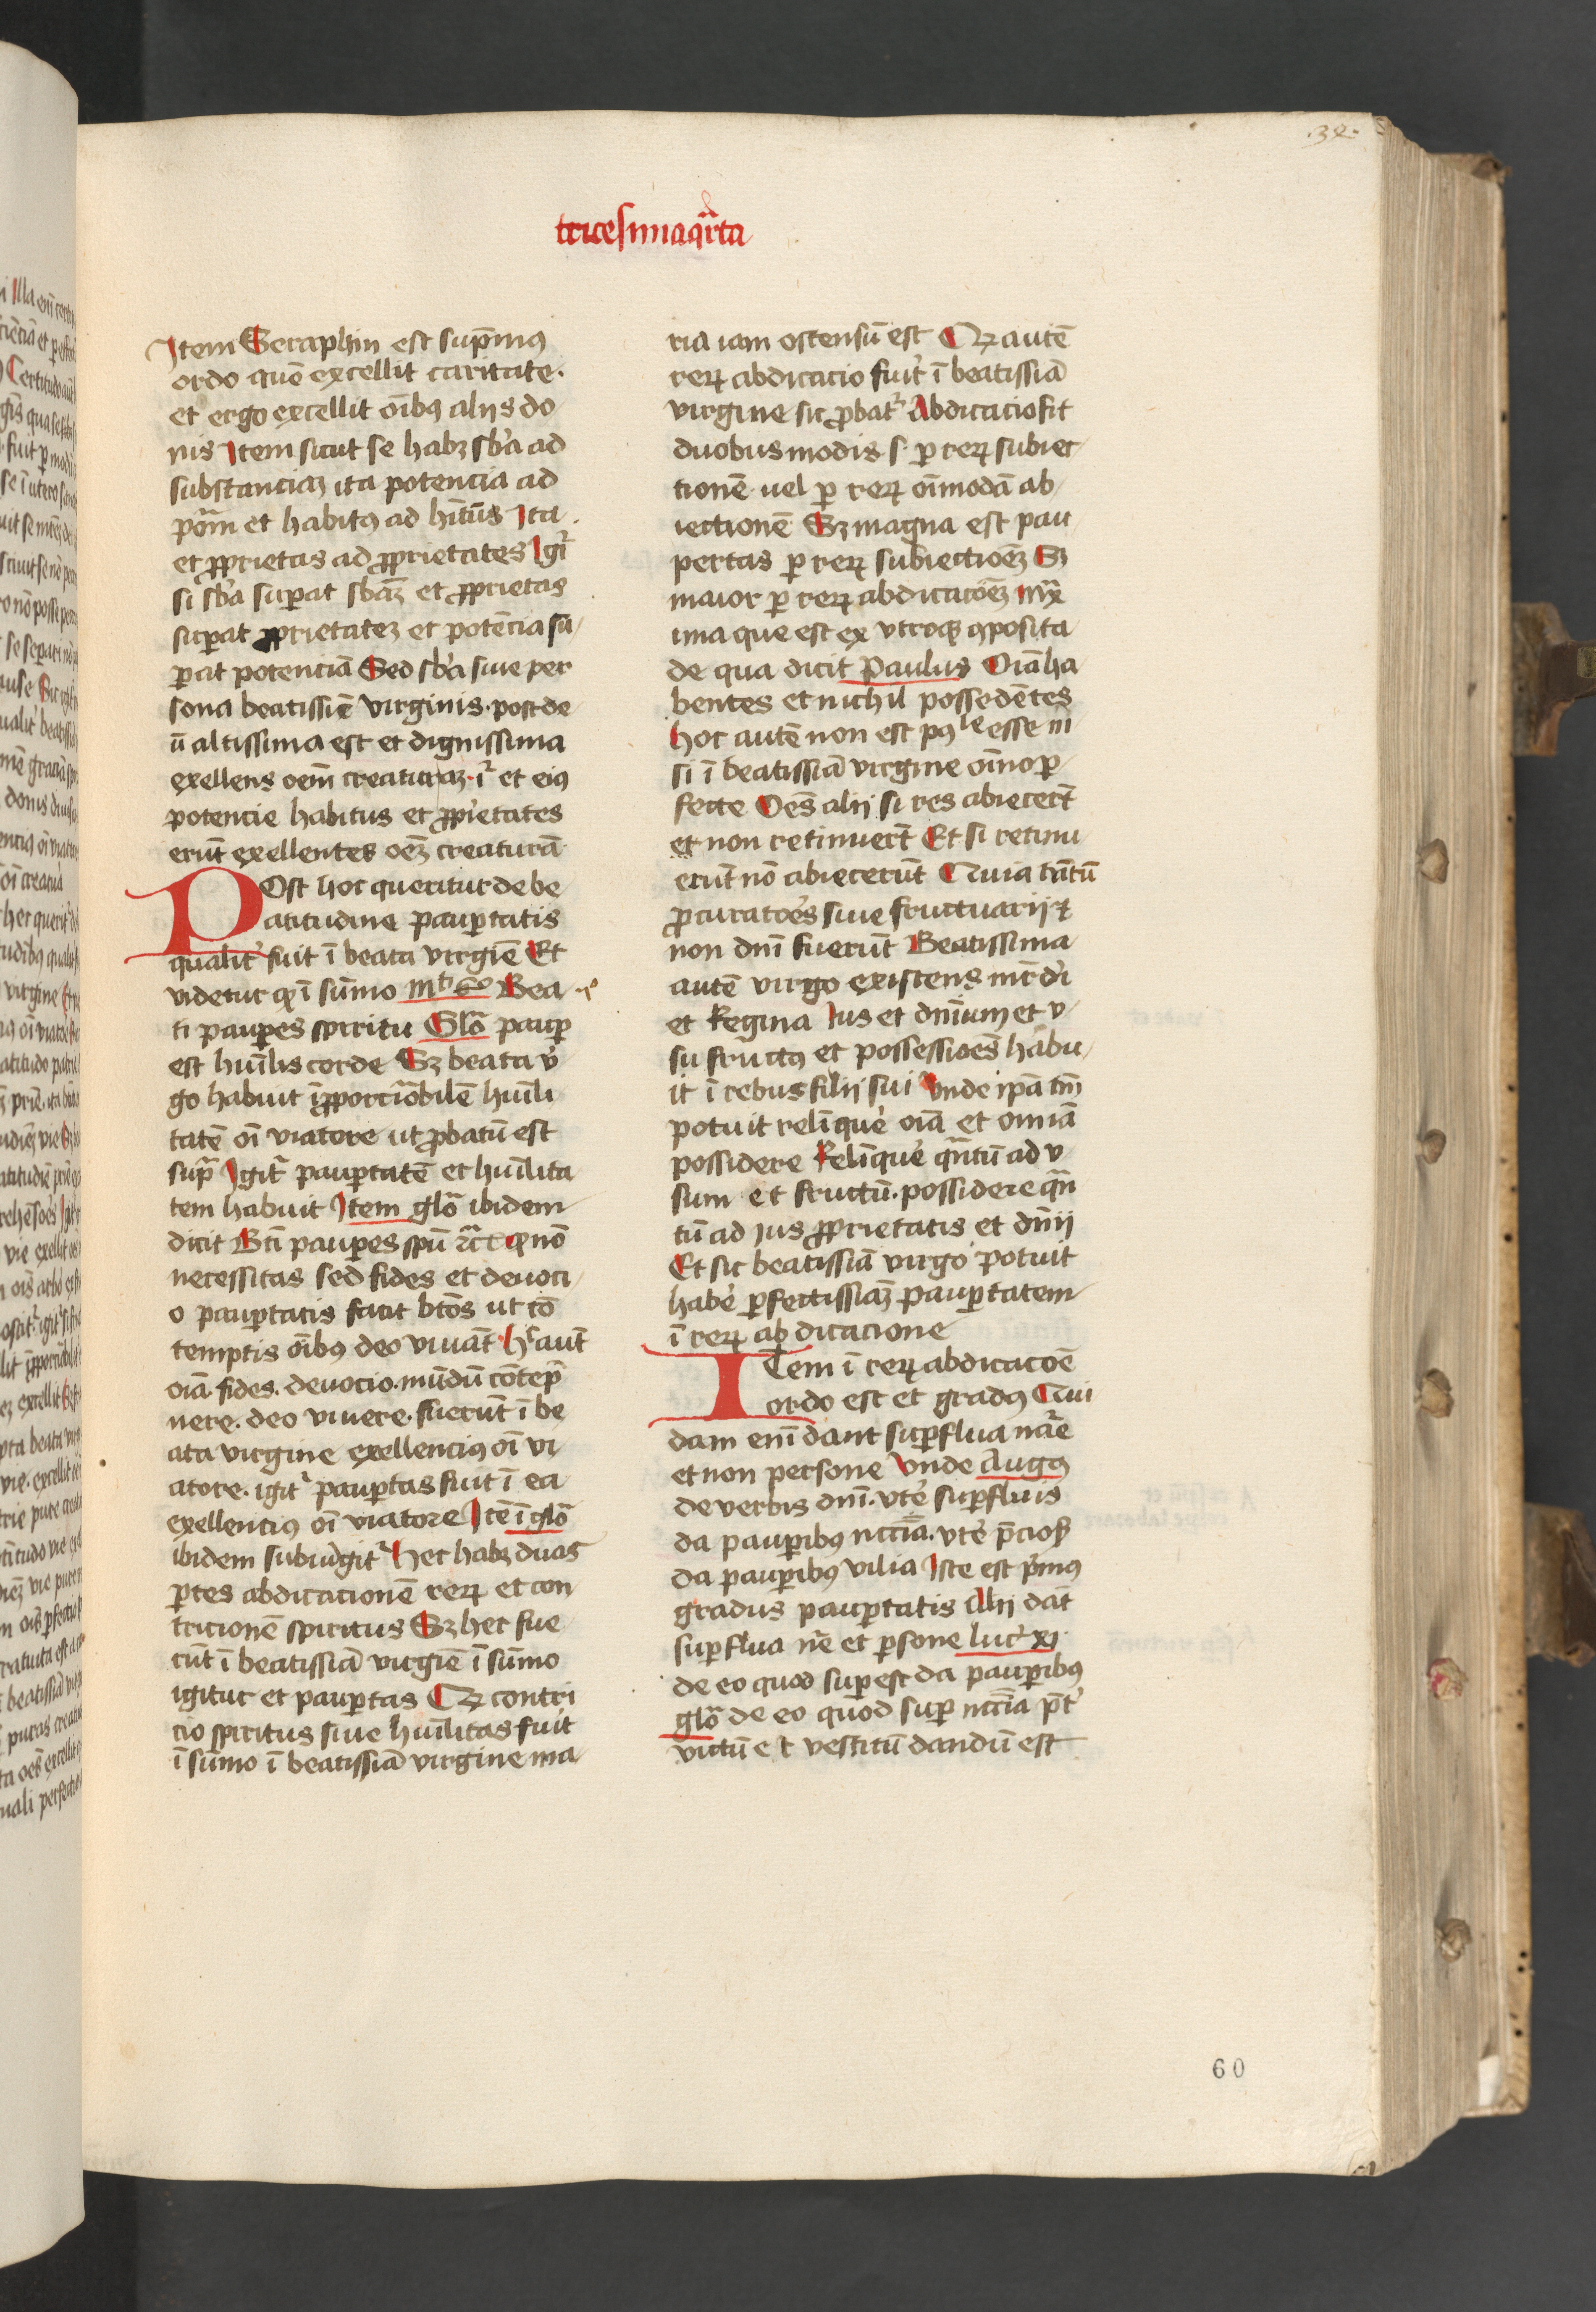 .34.
tricesimaqrta
Item Seraphin est supͣmꝰ
ordo quē excellit caritate.
et ergo excellit oībꝰ alijs do
nis Item sicut se habꝫ sb̄a ad
substanciaꝫ ita potencia ad
poām et habitꝰ ad hītūs Ita
et ꝓprietas ad ꝓprietates Igr̄
si sb̄a suꝑat sb̄aꝫ et ꝓprietas
suꝑat ꝓprietateꝫ et potēcia su
ꝑat potenciā Sed sb̄a siue per
sona beatissīe virginis. post de
ū altissima est et dignissima
exellens oēm creaturaꝫ. iͬ et eiꝰ
potencie habitus et ꝓpietates
erūt exellentes oēꝫ creaturā
POst hoc queritur de be
atitudine pauꝑtatis
qualit̓ fuit ī beata virgīe Et
videtur ꝙ ī sūmo Mͭ Bea
ti pauꝑes spiritu Glō pauꝑ
est huīlis corde Sꝫ beata v̓
go habuit īꝓporciōbilē huīli
tatē oī viatore ut ꝓbatū est
supͣ Igitͬ pauꝑtatē et huīlita
tem habuit Item glō ibidem
dicit Bt̄i pauꝑes spū ꝛc̄ ꝙ nō
necessitas sed fides et deuoci
o pauꝑtatis facit btōs ut cō
temptis oībꝰ deo viuāt hͨ aut̄
oīa. fides. deuocio. mūdū cōtep̄
nere. deo viuere. fuerūt ī be
ata virgine exellenciꝰ oī vi
atore. igitͬ pauꝑtas fuit ī ea
exellenciꝰ oī viatore Itē ī glō
ibidem subiūgitͬ hec habꝫ duas
ꝑtes abdicacionē reꝝ et con
tricionē spiritus Sꝫ hec fue
rūt ī beatissiā virgīe ī sūmo
igitur et pauꝑtas Qꝫ contri
cio spiritus siue huīlitas fuit
ī sūmo ī beatissiā virgine ma
ria iam ostensū est Qꝫ autē
reꝝ abdicacio fuit̓ ī beatissiā
virgine sic ꝓbatͬ Abdicacio fit
duobus modis. s. ꝑ reꝝ subiec
tionē. uel ꝑ reꝝ oīmodā ab
iectionē Sꝫ magna est pau
pertas ꝑ reꝝ subiectiōeꝫ Sꝫ
maior ꝑ reꝝ abdicacōeꝫ Max
ima que est ex vtroqꝫ ꝯposita
de qua dicit Paulus Oīa ha
bentes et nichil possedētes
hoc autē non est pꝰˡᵉ esse ni
si ī beatissiā virgine oīno ꝑ
fecte Oēs alij si res abiecer̄t
et non retinuer̄t Et si retinu
erūt nō abiecerūt Quia tātū
ꝓcuratoēs siue fructuarij et
non dnī fuerūt Beatissima
autē virgo existens mr̄ dī
et Regina Ius et dnīum et v
su fructꝰ et possessioēs habu
it ī rebus filij sui Vnde ip̄a tm̄
potuit relīque̓ oīa et omīa
possidere Relīque̓ qͣntū ad v
sum et fructū. possidere qͣn
tū ad Jus ꝓprietatis et dn̄ij
Et sic beatissiā virgo potuit
habe̓ ꝑfectissiāꝫ pauꝑtatem
ī reꝝ abdicacione
ITem ī reꝝ abdicacōe
ordo est et gradꝰ Qui
dam enī dant suꝑflua nāre
et non persone Vnde Augꝰ
de verbis dnī. vte̓ suꝑfluis
da pauꝑibꝰ nccīa. vte̓ p̄ciosꝭ
da pauꝑibꝰ vilia Iste est pͥmꝰ
gradus pauꝑtatis Alij dāt
suꝑflua nē et ꝑsone luc̓ xi
de eo quod suꝑest da pauꝑibꝰ
glō de eo quod suꝑ nccīa p̄t̓
victū et vestitū dandū est
60